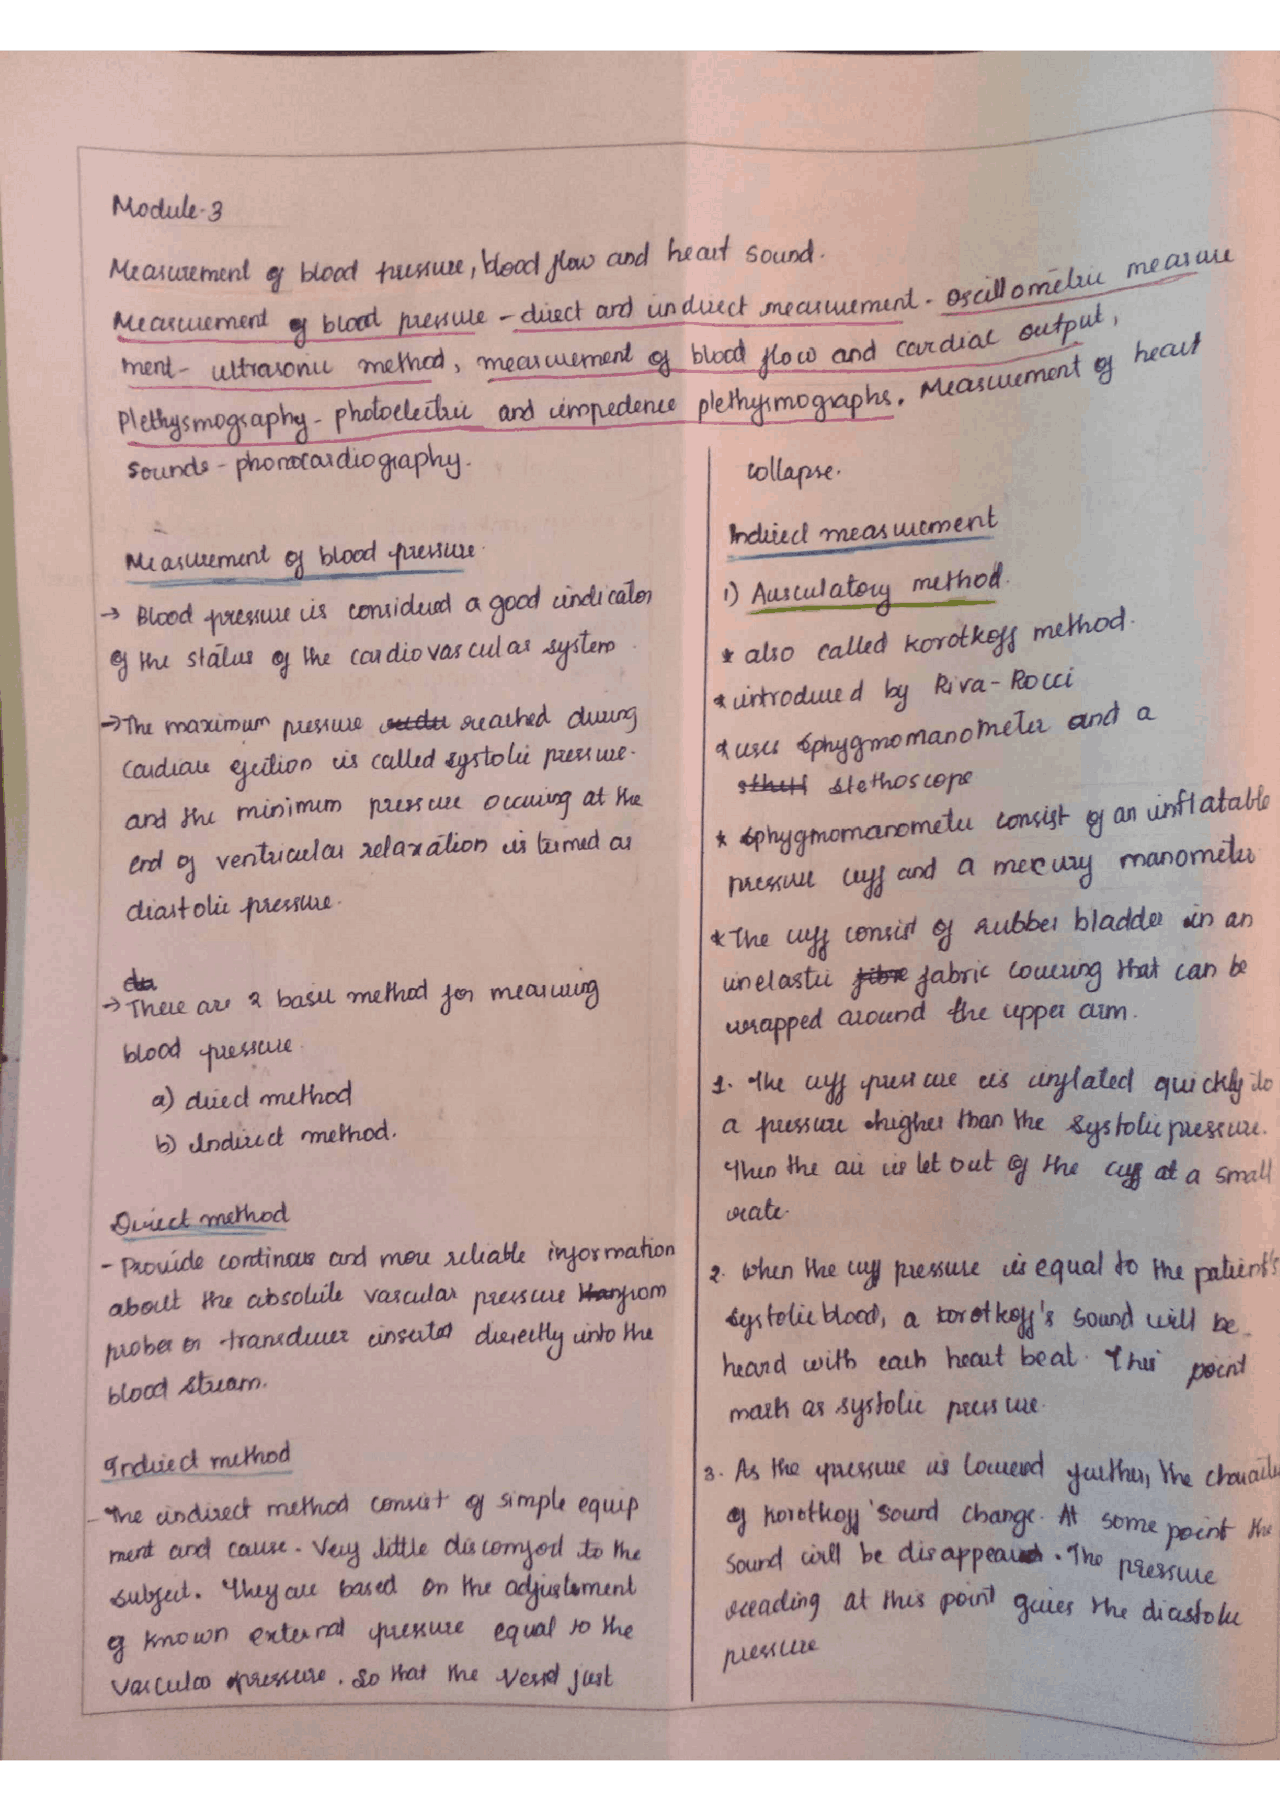 Module-3
Measurement of blood pressure, blood flow and heart sound.
Measurement of blood pressure - direct and indirect measurement - oscillometric measure
ment - ultrasonic method, measurement of blood flow and cardiac output,
Plethysmography - photoelectric and impedence plethysmographs. Measurement of heart
sounds - phonocardiography.
Measurement of blood pressure.
→ Blood pressure is considered a good indicator
of the status of the cardiovascular system.
→ The maximum pressure reached during
cardiac ejection is called systolic pressure.
and the minimum pressure occuring at the
end of ventricular relaxation is termed as
diastolic pressure.
→ There are 2 basic method for measuring
blood pressure.
a) direct method
b) Indirect method.
Direct method
- Provide continous and more reliable information
about the absolute vascular pressure from
probes or transducer inserted directly into the
blood stream.
Indirect method
- The indirect method consist of simple equip
ment and cause. Very little discomfort to the
subject. They are based on the adjustement
of known external pressure equal to the
vascular pressure. So that the vessel just
collapse.
Indirect measurement
1) Ausculatory method.
* also called korotkoff method.
* introduced by Riva-Rocci
* uses sphygmomanometer and a
stethoscope
* sphygmomanometer consist of an inflatable
pressure cuff and a mercury manometer
* The cuff consist of rubber bladder in an
inelastic fabric covering that can be
wrapped around the upper arm.
1. The cuff pressure is inflated quickly to
a pressure higher than the systolic pressure.
Then the air is let out of the cuff at a small
rate.
2. When the cuff pressure is equal to the patient's
systolic blood, a korotkoff's sound will be
heard with each heart beat. This point
mark as systolic pressure.
3. As the pressure is lowered further, the
of korotkoff 'sound change. At some point the
sound will be disappeared. The pressure
reading at this point gives the diastolic
pressure